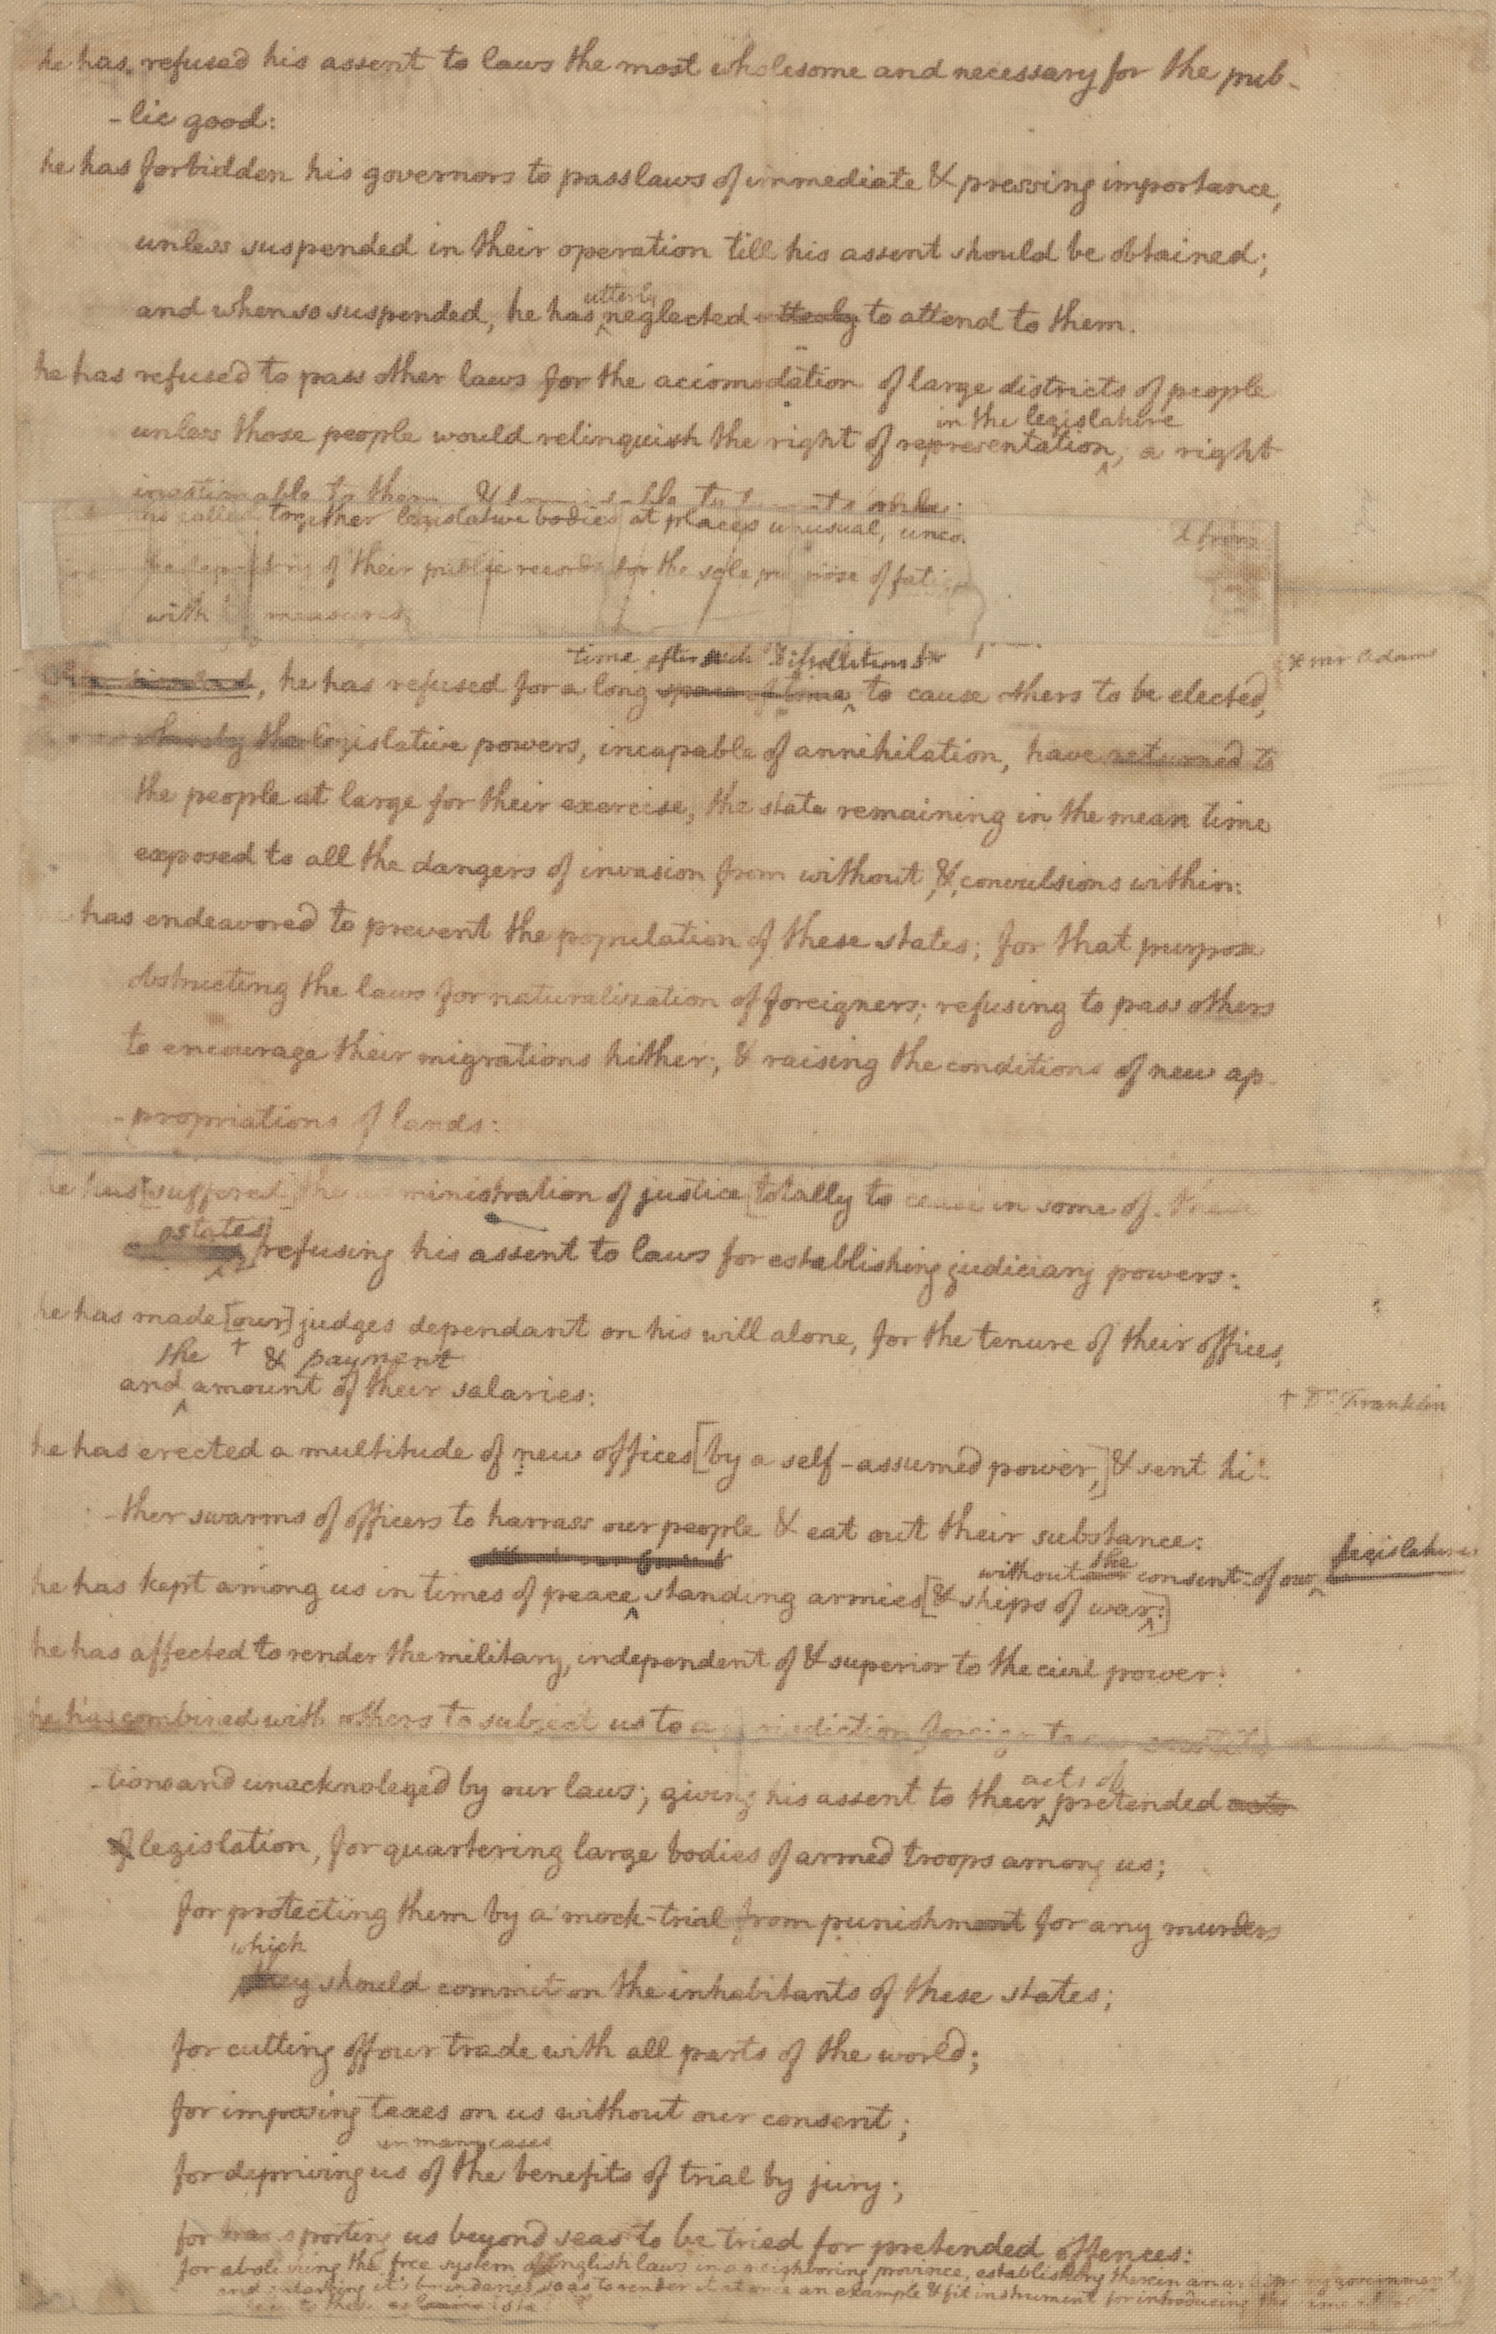 he has refused his assent to laws the most wholesome and necessary for the pub-
-lic good:
he has forbidden his governors to pass laws of immediate & pressing importance,
unless suspended in their operation till his assent should be obtained;
utterly
and when so suspended, he has ^ neglected utterly to attend to them.
he has refused to pass other laws for the accomodation of large districts of people
in the legislature
unless those people would relinquish the right of representation ^, a right
inestimable to them &
called together legislative bodies at places unusual, unco
& from
of their public records for the sole purpose of fati
with measures
time after such dissolutions *
* mr Adams
he has refused for a long space of time ^ to cause others to be elected,
whereby the legislative powers, incapable of annihilation, have returned to
the people at large for their exercise, the state remaining in the mean time
exposed to all the dangers of invasion from without & convulsions within:
has endeavored to prevent the population of these states; for that purpose
obstructing the laws for naturalization of foreigners; refusing to pass others
to encourage their migrations hither; & raising the conditions of new ap-
-propriations of lands:
he has [suffered] the administration of justice [totally to cease in some of these
states]
^ refusing his assent to laws for establishing judiciary powers:
he has made [our] judges dependant on his will alone, for the tenure of their offices,
the + & payment
and ^ amount of their salaries:
+ Dr. Franklin
he has erected a multitude of new offices [by a self-assumed power,] & sent hi-
-ther swarms of officers to harrass our people & eat out their substance:
without the consent of our ^ legislatures
he has kept among us in times of peace ^ standing armies [& ships of war:]
he has affected to render the military, independent of & superior to the civil power:
he has combined with others to subject us to a jurisdiction foreign to
-tions and unacknoleged by our laws; giving his assent to their ^ pretended acts
acts of
of legislation, for quartering large bodies of armed troops among us;
for protecting them by a mock-trial from punishment for any murders
which
they should commit on the inhabitants of these states;
for cutting off our trade with all parts of the world;
for imposing taxes on us without our consent;
in many cases
for depriving us of the benefits of trial by jury;
for transporting us beyond seas to be tried for pretended offences:
for abolishing the free system of English laws in a neighboring province, establishing therein an arbitrary government
and enlarging it's boundaries so as to render it at once an example & fit instrument for introducing the same